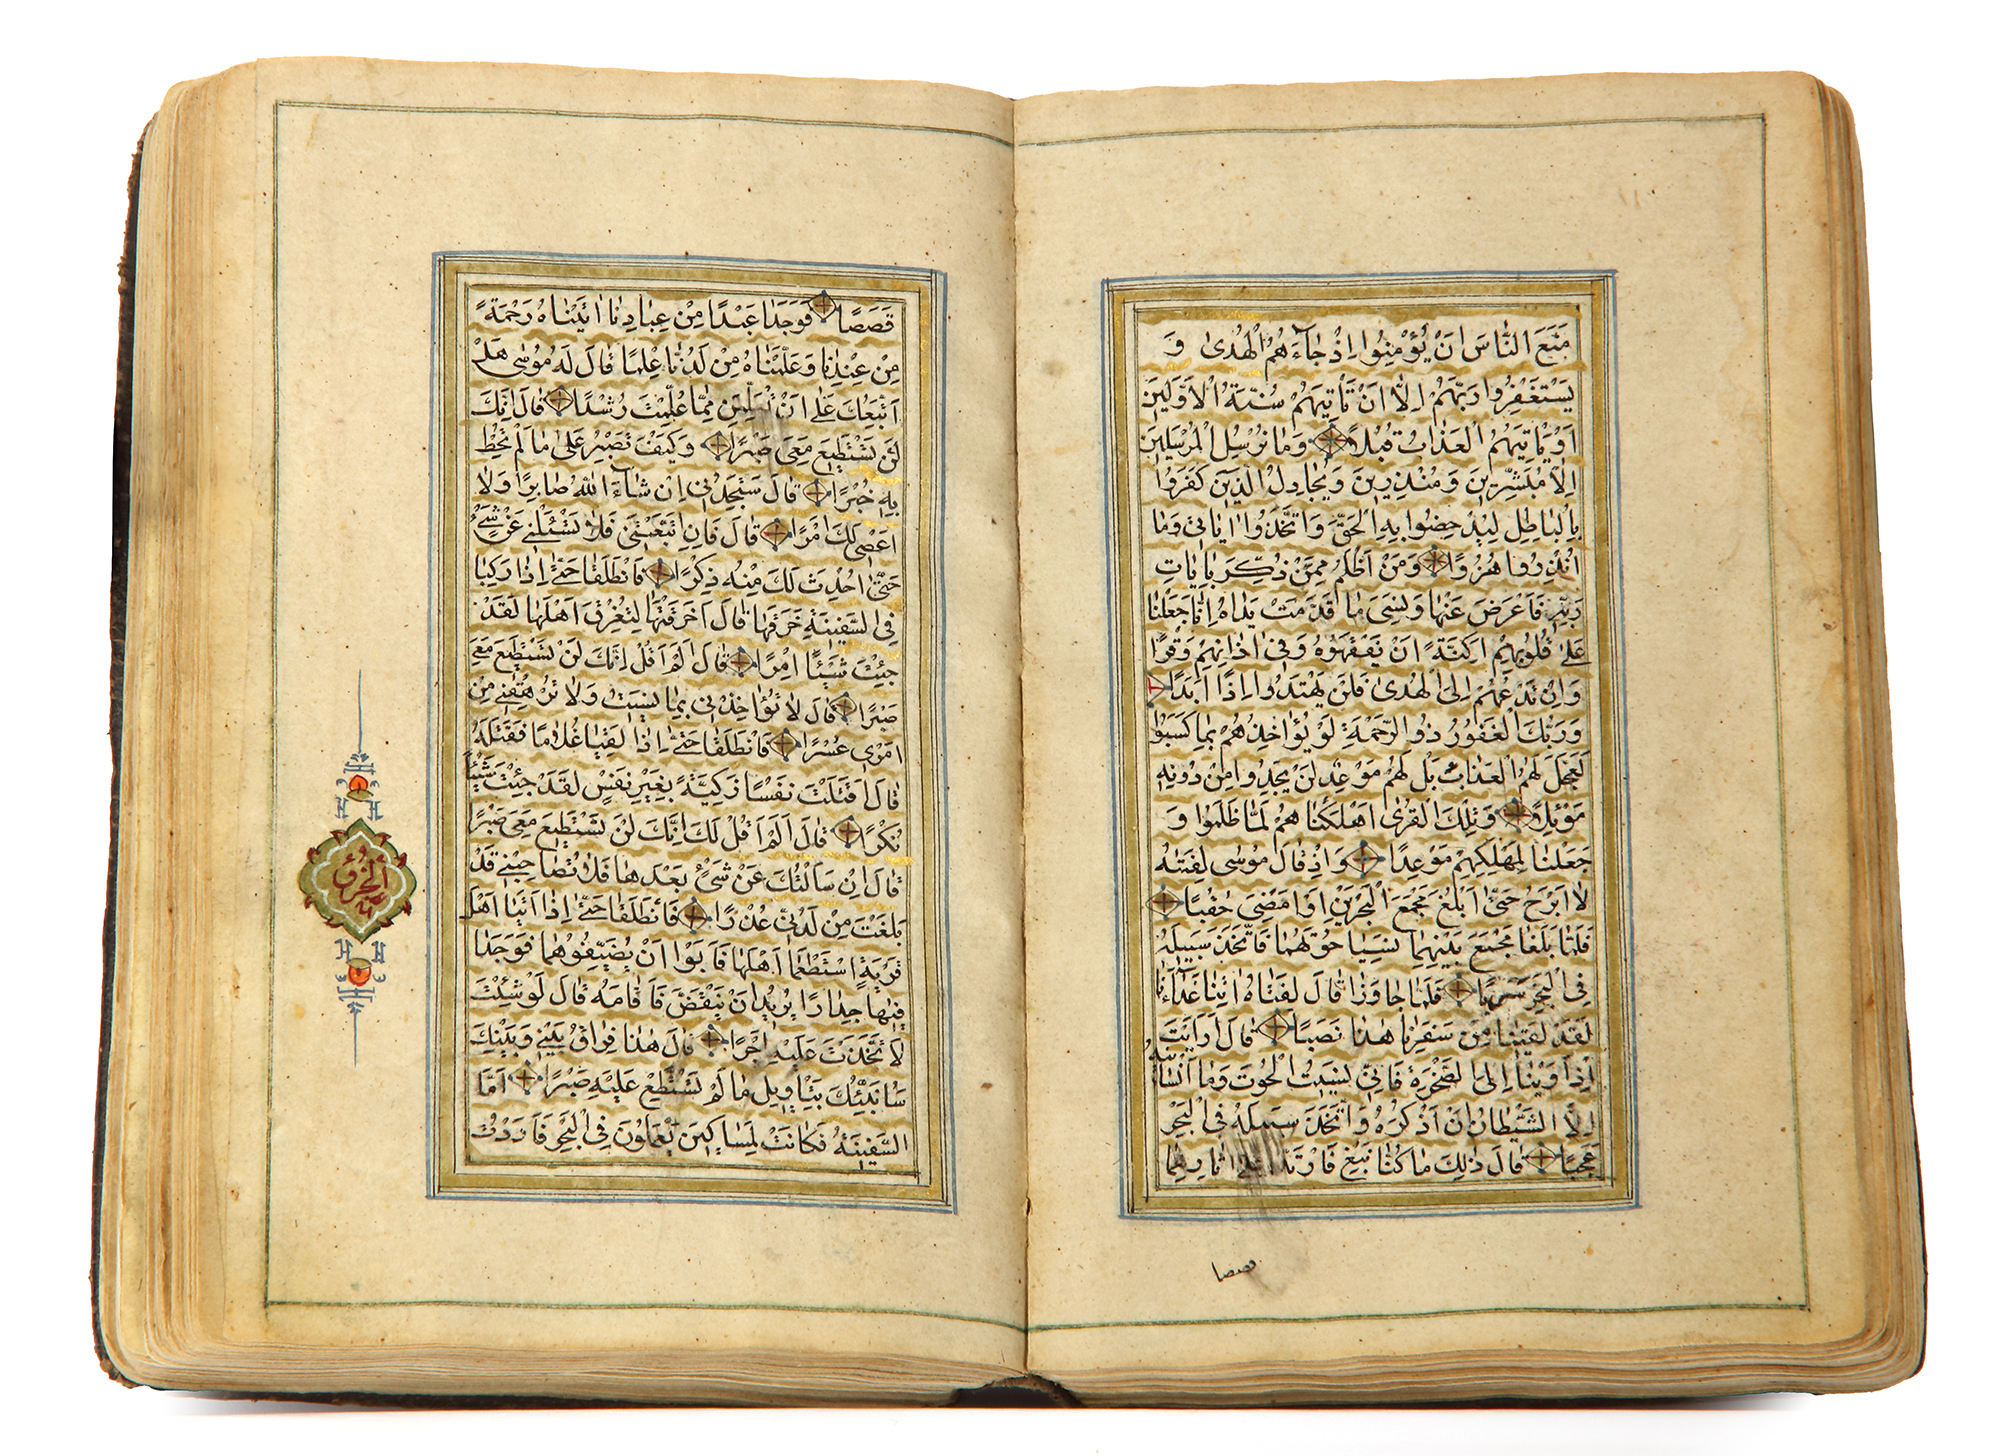 مَنَعَ النَّاسَ اَنْ يُؤْمِنُوا اِذْ جٰاءَهُمُ الْهُدىٰ وَ
يَسْتَغْفِرُوا رَبَّهُمْ اِلّٰا اَنْ تَأْتِيَهُمْ سُنَّةُ الْاَوَّلِينَ
اَوْ يَأْتِيَهُمُ الْعَذٰابُ قُبُلاً وَمٰا نُرْسِلُ الْمُرْسَلِينَ
اِلّٰا مُبَشِّرِينَ وَمُنْذِرِينَ وَيُجٰادِلُ الَّذِينَ كَفَرُوا
بِالْبٰاطِلِ لِيُدْحِضُوا بِهِ الْحَقَّ وَاتَّخَذُوا اٰيٰاتِي وَمٰا
اُنْذِرُوا هُزُوًا وَمَنْ اَظْلَمُ مِمَّنْ ذُكِّرَ بِاٰيٰاتِ
رَبِّهِ فَاَعْرَضَ عَنْهٰا وَنَسِيَ مٰا قَدَّمَتْ يَدٰاهُ اِنّٰا جَعَلْنٰا
عَلىٰ قُلُوبِهِمْ اَكِنَّةً اَنْ يَفْقَهُوهُ وَفِي اٰذٰانِهِمْ وَقْرًا
وَاِنْ تَدْعُهُمْ اِلَى الْهُدىٰ فَلَنْ يَهْتَدُوا اِذًا اَبَدًا
وَرَبُّكَ الْغَفُورُ ذُو الرَّحْمَةِ لَوْ يُؤٰاخِذُهُمْ بِمٰا كَسَبُوا
لَعَجَّلَ لَهُمُ الْعَذٰابَ بَلْ لَهُمْ مَوْعِدٌ لَنْ يَجِدُوا مِنْ دُونِهِ
مَوْئِلاً وَتِلْكَ الْقُرىٰ اَهْلَكْنٰاهُمْ لَمّٰا ظَلَمُوا وَ
جَعَلْنٰا لِمَهْلِكِهِمْ مَوْعِدًا وَاِذْ قٰالَ مُوسىٰ لِفَتٰيهُ
لٰا اَبْرَحُ حَتّىٰ اَبْلُغَ مَجْمَعَ الْبَحْرَيْنِ اَوْ اَمْضِيَ حُقُبًا
فَلَمّٰا بَلَغٰا مَجْمَعَ بَيْنِهِمٰا نَسِيٰا حُوتَهُمٰا فَاتَّخَذَ سَبِيلَهُ
فِي الْبَحْرِ سَرَبًا فَلَمّٰا جٰاوَزٰا قٰالَ لِفَتٰاهُ اٰتِنٰا غَدٰاءَنٰا
لَقَدْ لَقِينٰا مِنْ سَفَرِنٰا هٰذٰا نَصَبًا قٰالَ اَرَاَيْتَ
اِذْ اَوَيْنٰا اِلَى الصَّخْرَةِ فَاِنِّي نَسِيتُ الْحُوتَ وَمٰا اَنْسٰانِيهُ
اِلَّا الشَّيْطٰانُ اَنْ اَذْكُرَهُ وَاتَّخَذَ سَبِيلَهُ فِي الْبَحْرِ
عَجَبًا قٰالَ ذٰلِكَ مٰا كُنّٰا نَبْغِ فَارْتَدّٰا عَلىٰ اٰثٰارِهِمٰا
قصصا
قَصَصًا فَوَجَدٰا عَبْدًا مِنْ عِبٰادِنٰا اٰتَيْنٰاهُ رَحْمَةً
مِنْ عِنْدِنٰا وَعَلَّمْنٰاهُ مِنْ لَدُنّٰا عِلْمًا قٰالَ لَهُ مُوسىٰ هَلْ
اَتَّبِعُكَ عَلىٰ اَنْ تُعَلِّمَنِ مِمّٰا عُلِّمْتَ رُشْدًا قٰالَ اِنَّكَ
لَنْ تَسْتَطِيعَ مَعِيَ صَبْرًا وَكَيْفَ تَصْبِرُ عَلىٰ مٰا لَمْ تُحِطْ
بِهِ خُبْرًا قٰالَ سَتَجِدُنِي اِنْ شٰاءَ اللّٰهُ صٰابِرًا وَلٰا
اَعْصِي لَكَ اَمْرًا قٰالَ فَاِنِ اتَّبَعْتَنِي فَلٰا تَسْئَلْنِي عَنْ شَيْءٍ
حَتّىٰ اُحْدِثَ لَكَ مِنْهُ ذِكْرًا فَانْطَلَقٰا حَتّىٰ اِذٰا رَكِبٰا
فِي السَّفِينَةِ خَرَقَهٰا قٰالَ اَخَرَقْتَهٰا لِتُغْرِقَ اَهْلَهٰا لَقَدْ
جِئْتَ شَيْئًا اِمْرًا قٰالَ اَلَمْ اَقُلْ اِنَّكَ لَنْ تَسْتَطِيعَ مَعِيَ
صَبْرًا قٰالَ لٰا تُؤٰاخِذْنِي بِمٰا نَسِيتُ وَلٰا تُرْهِقْنِي مِنْ
اَمْرِي عُسْرًا فَانْطَلَقٰا حَتّىٰ اِذٰا لَقِيٰا غُلٰامًا فَقَتَلَهُ
قٰالَ اَقَتَلْتَ نَفْسًا زَكِيَّةً بِغَيْرِ نَفْسٍ لَقَدْ جِئْتَ شَيْئًا
نُكْرًا قٰالَ اَلَمْ اَقُلْ لَكَ اِنَّكَ لَنْ تَسْتَطِيعَ مَعِيَ صَبْرًا
قٰالَ اِنْ سَاَلْتُكَ عَنْ شَيْءٍ بَعْدَهٰا فَلٰا تُصٰاحِبْنِي قَدْ
بَلَغْتَ مِنْ لَدُنِّي عُذْرًا فَانْطَلَقٰا حَتّىٰ اِذٰا اَتَيٰا اَهْلَ
قَرْيَةٍ اسْتَطْعَمٰا اَهْلَهٰا فَاَبَوْا اَنْ يُضَيِّفُوهُمٰا فَوَجَدٰا
فِيهٰا جِدٰارًا يُرِيدُ اَنْ يَنْقَضَّ فَاَقٰامَهُ قٰالَ لَوْ شِئْتَ
لَاتَّخَذْتَ عَلَيْهِ اَجْرًا قٰالَ هٰذٰا فِرٰاقُ بَيْنِي وَبَيْنِكَ
سَاُنَبِّئُكَ بِتَأْوِيلِ مٰا لَمْ تَسْتَطِعْ عَلَيْهِ صَبْرًا اَمَّا
السَّفِينَةُ فَكٰانَتْ لِمَسٰاكِينَ يَعْمَلُونَ فِي الْبَحْرِ فَاَرَدْتُ